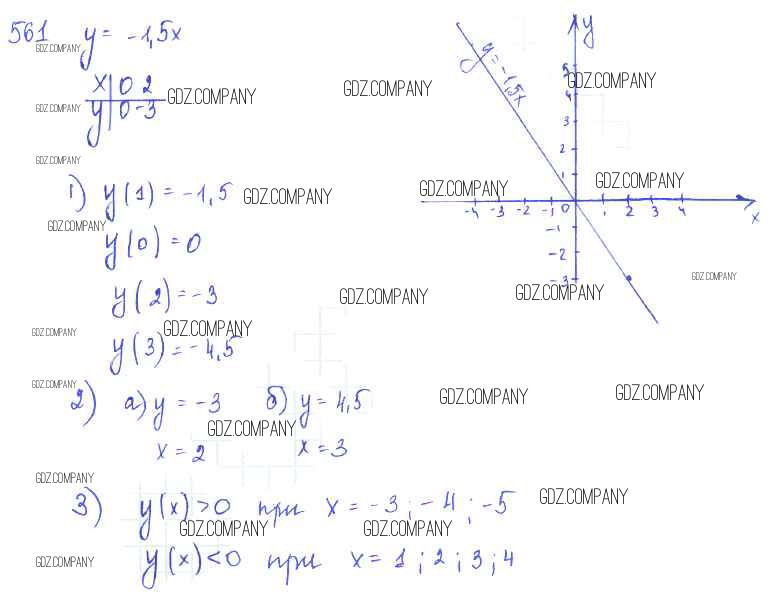 561 y = -1,5x
GDZ.COMPANY
x | 0 2
y | 0 -3
GDZ.COMPANY
GDZ.COMPANY
GDZ.COMPANY
GDZ.COMPANY
1) y(1) = -1,5
GDZ.COMPANY
GDZ.COMPANY
y(0) = 0
y(2) = -3
GDZ.COMPANY
GDZ.COMPANY
y(3) = -4,5
GDZ.COMPANY
2) а) y = -3 б) y = 4,5
GDZ.COMPANY
x = 2 x = 3
GDZ.COMPANY
3) y(x) > 0 при x = -3; -4; -5
GDZ.COMPANY GDZ.COMPANY
y(x) < 0 при x = 1; 2; 3; 4
GDZ.COMPANY
y
y = -1,5x
GDZ.COMPANY
5
4
3
2
1
GDZ.COMPANY
GDZ.COMPANY
-4 -3 -2 -1 0 1 2 3 4
x
-1
-2
-3
GDZ.COMPANY
GDZ.COMPANY
GDZ.COMPANY
GDZ.COMPANY
GDZ.COMPANY
GDZ.COMPANY